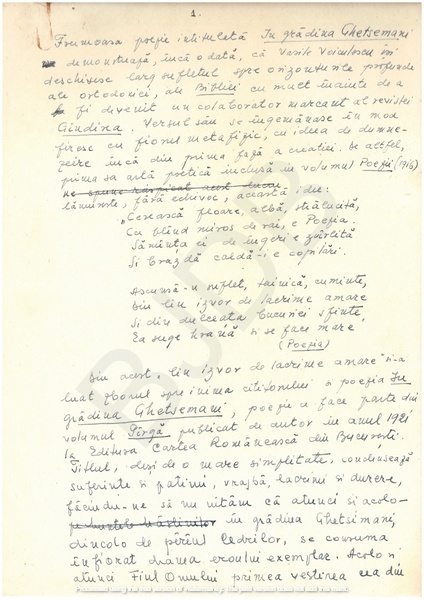 1.
Frumoasa poezie intitulată In grădina Ghetsemani
demonstrează, încă o dată, că Vasile Voiculescu își
deschisese larg sufletul spre orizonturile profunde
ale ortodoxiei, ale Bibliei cu mult înainte de a
fi devenit un colaborator marcant al revistei
Gîndirea. Versul său se îngemănase în mod
firesc cu fiorul metafizic, cu ideea de dumne-
zeire încă din prima fază a creației. De altfel,
prima sa artă poetică inclusă în volumul Poezii (1916)
ne spune răspicat acest lucru
lămurește, fără echivoc, această idee:
"Cerească floare, albă, strălucită,
Cu blînd miros de rai, e Poezia.
Sămînța ei de îngeri e zvîrlită
Și brazdă caldă-i e copilări.
Ascunsă-n suflet, tainică, cuminte,
Din lin izvor de lacrime amare
Și din dulceața bucuriei sfinte,
Ea suge hrană și se face mare
(Poezia)
Din acest "lin izvor de lacrime amare" și-a
luat zborul spre inima cititorului și poezia In
grădina Ghetsemani, poezie ce face parte din
volumul Pîrgă publicat de autor în anul 1921
la Editura Cartea Românească din București.
Titlul, deși de o mare simplitate, condensează
suferințe și patimi, vrajbă, lacrimi și durere,
făcîndu-ne să nu uităm că atunci și acolo-
în grădina Ghetsimani,
dincolo de pîrîul Cedrilor, se consuma
înfiorat drama eroului exemplar. Acolo și
atunci Fiul Omului primea vestirea cea din